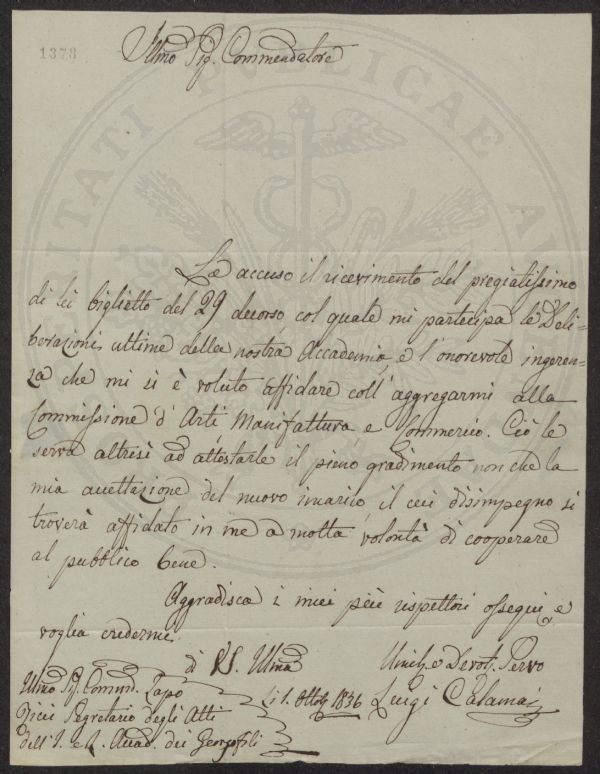 1378
Illmo Sig. Commendatore
Le accuso il ricevimento del pregiatissimo
di lei biglietto del 29 decorso col quale mi partecipa le Deli-
berazioni ultime della nostra Accademia, e l'onorevole ingeren-
za che mi si è voluto affidare coll'aggregarmi alla
Commissione d'Arti, Manifattura, e Commercio. Ciò le
serva altresì ad attestarle il pieno gradimento non che la
mia accettazione del nuovo incarico, il cui disimpegno si
troverà affidato in me a molta volontà di cooperare
al pubblico bene.
Aggradisca i miei più rispettosi ossequi, e
voglia credermi
di VS. Illma
Umil. e Devot. Servo
Illmo Sig. Commd. Lapo
Li 1. Ottob. 1836
Luigi Calamai
Ricci Segretario degli Atti
dell'I. e R. Accad. dei Georgofili